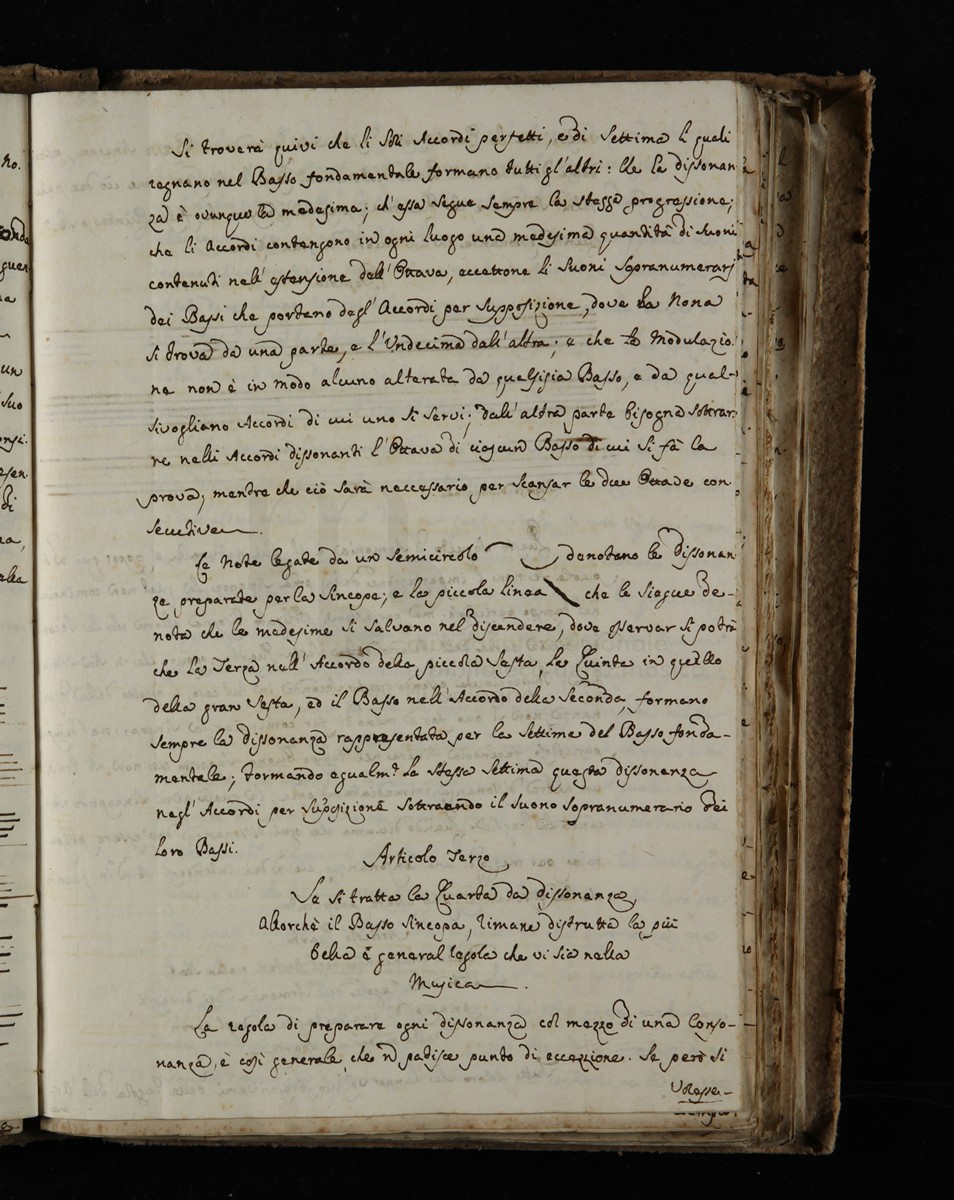 Si troverà quivi che li soli Accordi perfetti, e di Settima li quali
regnano nel Basso fondamentale formano tutti gl'altri: che la dissonan
za è ovunque la medesima; ch'essa segue sempre la stessa progressione;
che li Accordi contengono in ogni luogo una medesima quantità di Suoni
contenuti nell'estensione dell'Ottava, eccettone li Suoni Sopranumerarj
dei Bassi che portano degl'Accordi per Supposizione, dove la Nona
si trova da una parte, e l'Undecima dall'altra; e che la Modulazio
ne non è in modo alcuno alterata da qualsisia Basso, e da qual-
sivogliano Accordi di cui uno si servi; dall'altra parte bisogna sottrar
re nelli Accordi dissonanti l'Ottava di ciascun Basso di cui si fà la
prova, mentre che ciò sarà neccessario per scansar le due Ottave con
secutive.
Le Note legate da un Semicircolo denotano le dissonan
ze preparate per la sincope; e la piccola linea che le siegue de-
nota che le medesime si salvano nel discendere, dove osservar si potrà
che la Terza nell'Accordo della piccola Sesta, la Quinta in quello
della gran Sesta, ed il Basso nell'Accordo della Seconda, formano
sempre la dissonanza rappresentata per la Settima del Basso fonda-
mentale; formando egualm.e la stessa Settima questa dissonanza
negl'Accordi per Supposizione sottraendo il Suono sopranumerario dei
loro Bassi.
Articolo Terzo
Se si tratta la Quarta da dissonanza,
Allorchè il Basso sincopa, rimane distrutta la più
bella e general regola che vi sia nella
Musica.
La regola di preparare ogni dissonanza col mezzo di una Conso-
nanza, è così generale, che ñ patisce punto di eccezzione. Se però si
volesse-